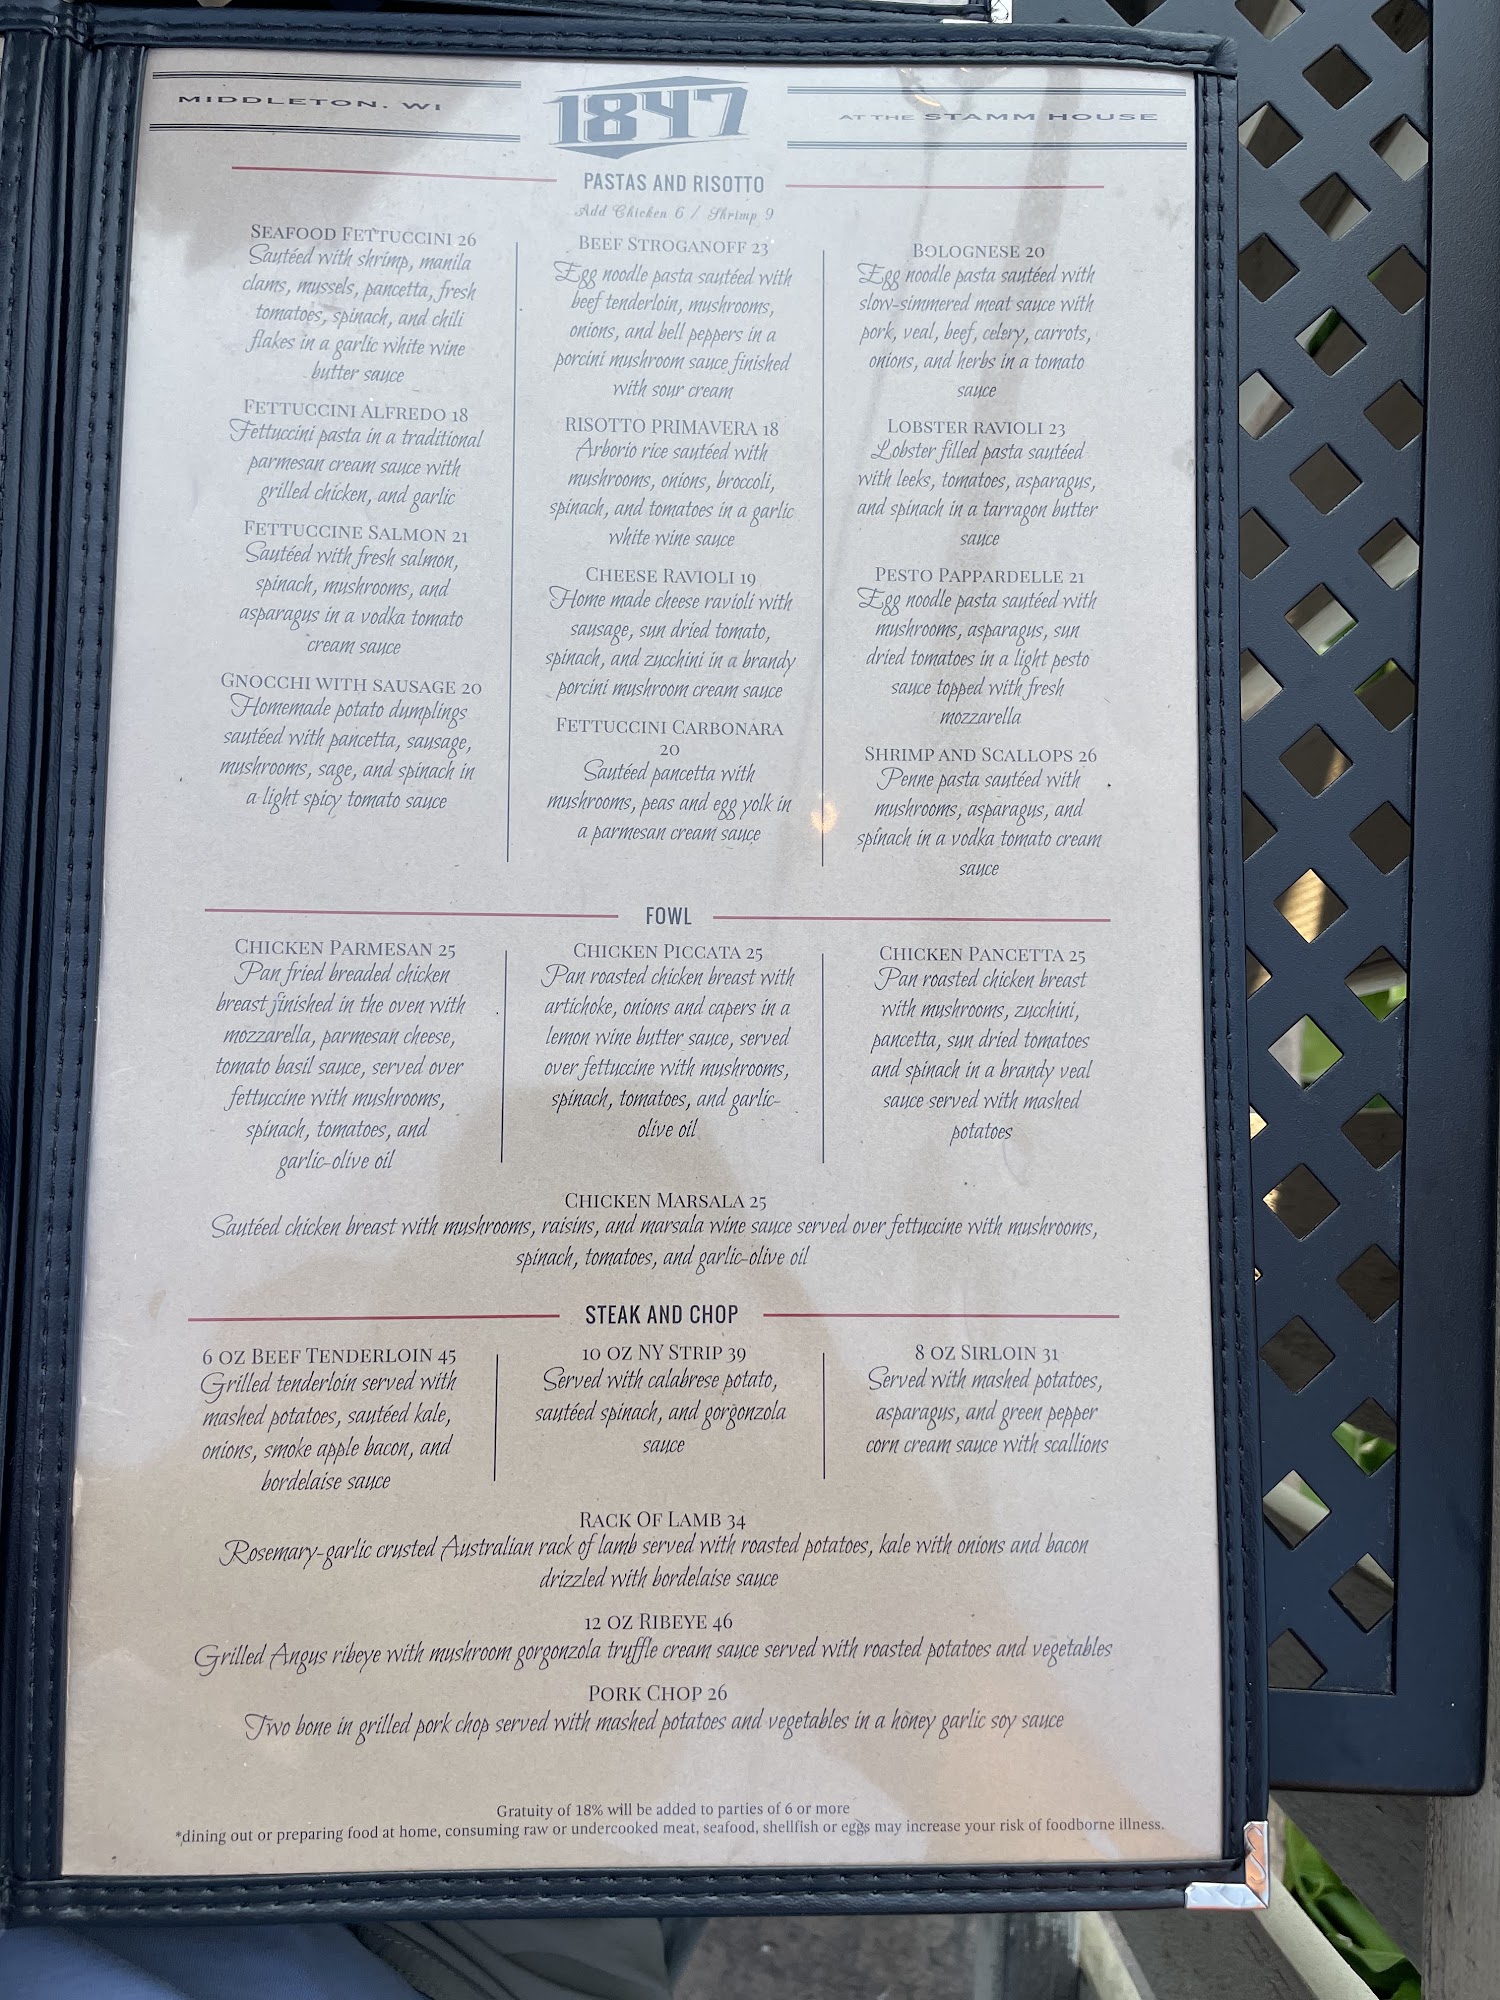 MIDDLETON, WI
1847
AT THE STAMM HOUSE
PASTAS AND RISOTTO
Add Chicken 6 / Shrimp 9
SEAFOOD FETTUCCINI 26
Sautéed with shrimp, manila
clams, mussels, pancetta, fresh
tomatoes, spinach, and chili
flakes in a garlic white wine
butter sauce
FETTUCCINI ALFREDO 18
Fettuccini pasta in a traditional
parmesan cream sauce with
grilled chicken, and garlic
FETTUCCINE SALMON 21
Sautéed with fresh salmon,
spinach, mushrooms, and
asparagus in a vodka tomato
cream sauce
GNOCCHI WITH SAUSAGE 20
Homemade potato dumplings
sautéed with pancetta, sausage,
mushrooms, sage, and spinach in
a light spicy tomato sauce
BEEF STROGANOFF 23
Egg noodle pasta sautéed with
beef tenderloin, mushrooms,
onions, and bell peppers in a
porcini mushroom sauce finished
with sour cream
RISOTTO PRIMAVERA 18
Arborio rice sautéed with
mushrooms, onions, broccoli,
spinach, and tomatoes in a garlic
white wine sauce
CHEESE RAVIOLI 19
Home made cheese ravioli with
sausage, sun dried tomato,
spinach, and zucchini in a brandy
porcini mushroom cream sauce
FETTUCCINI CARBONARA
20
Sautéed pancetta with
mushrooms, peas and egg yolk in
a parmesan cream sauce
BOLOGNESE 20
Egg noodle pasta sautéed with
slow-simmered meat sauce with
pork, veal, beef, celery, carrots,
onions, and herbs in a tomato
sauce
LOBSTER RAVIOLI 23
Lobster filled pasta sautéed
with leeks, tomatoes, asparagus,
and spinach in a tarragon butter
sauce
PESTO PAPPARDELLE 21
Egg noodle pasta sautéed with
mushrooms, asparagus, sun
dried tomatoes in a light pesto
sauce topped with fresh
mozzarella
SHRIMP AND SCALLOPS 26
Penne pasta sautéed with
mushrooms, asparagus, and
spinach in a vodka tomato cream
sauce
FOWL
CHICKEN PARMESAN 25
Pan fried breaded chicken
breast finished in the oven with
mozzarella, parmesan cheese,
tomato basil sauce, served over
fettuccine with mushrooms,
spinach, tomatoes, and
garlic-olive oil
CHICKEN PICCATA 25
Pan roasted chicken breast with
artichoke, onions and capers in a
lemon wine butter sauce, served
over fettuccine with mushrooms,
spinach, tomatoes, and garlic-
olive oil
CHICKEN PANCETTA 25
Pan roasted chicken breast
with mushrooms, zucchini,
pancetta, sun dried tomatoes
and spinach in a brandy veal
sauce served with mashed
potatoes
CHICKEN MARSALA 25
Sautéed chicken breast with mushrooms, raisins, and marsala wine sauce served over fettuccine with mushrooms,
spinach, tomatoes, and garlic-olive oil
STEAK AND CHOP
6 OZ BEEF TENDERLOIN 45
Grilled tenderloin served with
mashed potatoes, sautéed kale,
onions, smoke apple bacon, and
bordelaise sauce
10 OZ NY STRIP 39
Served with calabrese potato,
sautéed spinach, and gorgonzola
sauce
8 OZ SIRLOIN 31
Served with mashed potatoes,
asparagus, and green pepper
corn cream sauce with scallions
RACK OF LAMB 34
Rosemary-garlic crusted Australian rack of lamb served with roasted potatoes, kale with onions and bacon
drizzled with bordelaise sauce
12 OZ RIBEYE 46
Grilled Angus ribeye with mushroom gorgonzola truffle cream sauce served with roasted potatoes and vegetables
PORK CHOP 26
Two bone in grilled pork chop served with mashed potatoes and vegetables in a honey garlic soy sauce
Gratuity of 18% will be added to parties of 6 or more
*dining out or preparing food at home, consuming raw or undercooked meat, seafood, shellfish or eggs may increase your risk of foodborne illness.